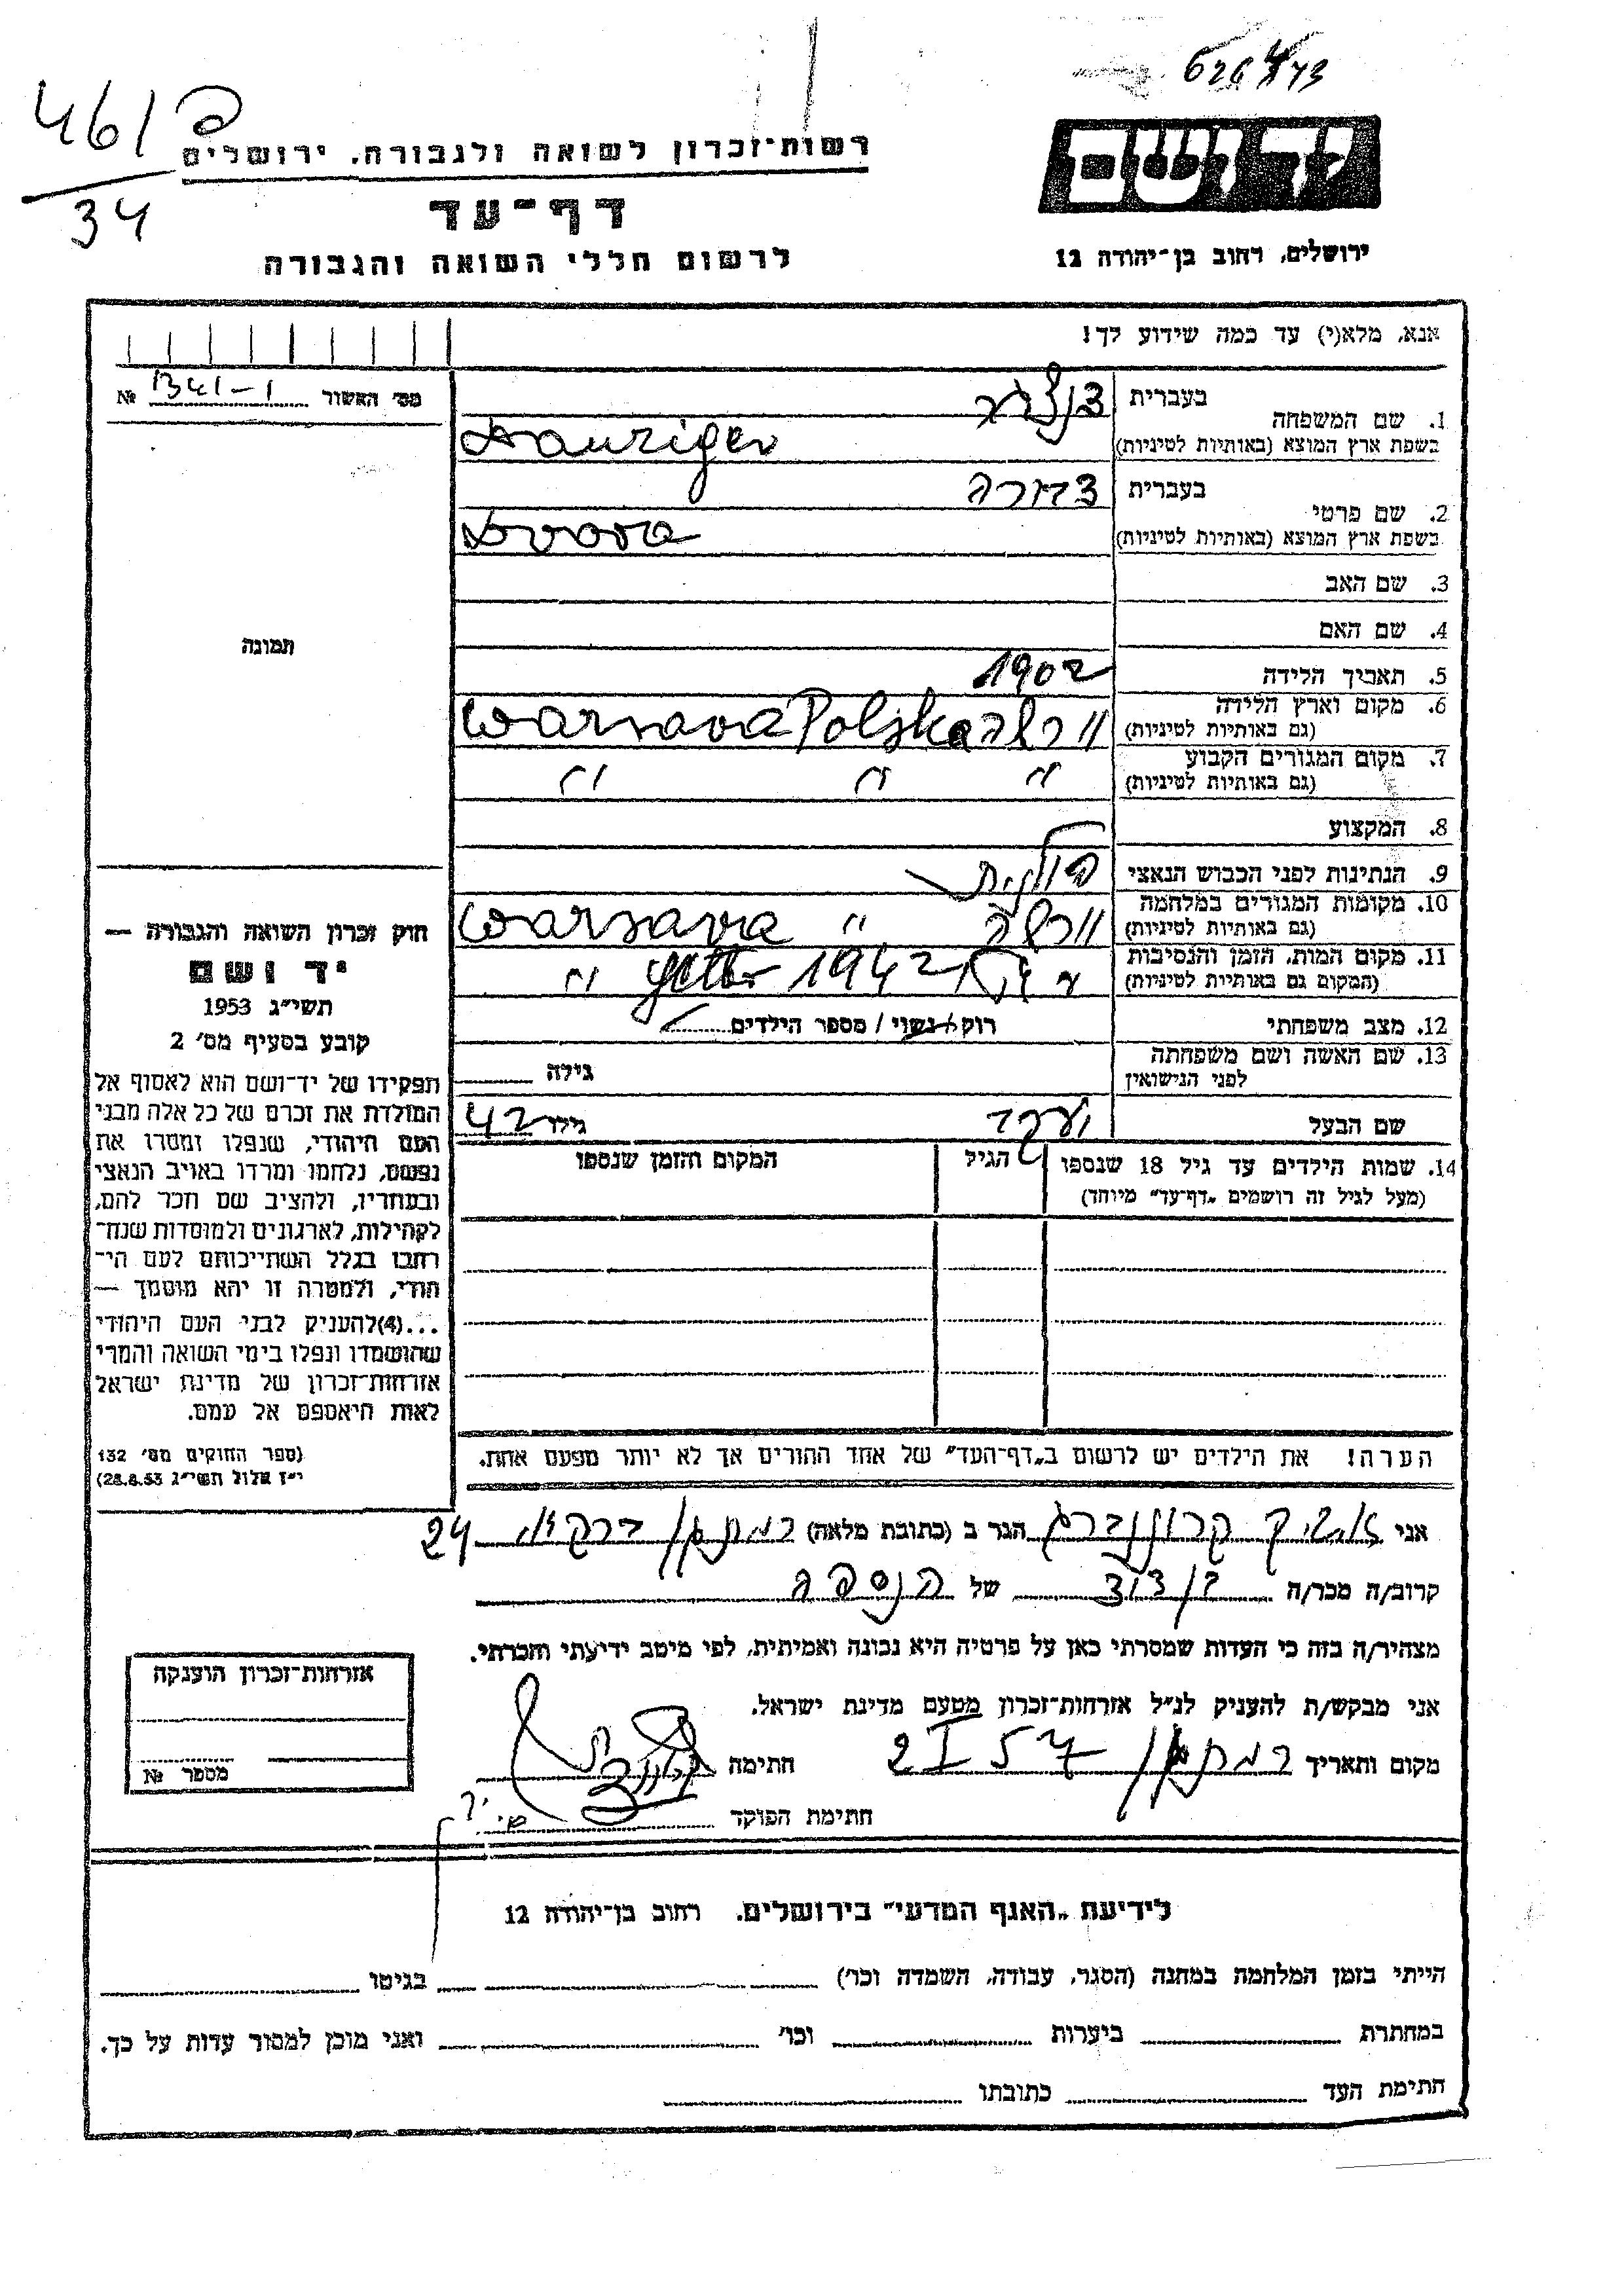 6264/73
461 פ
34
רשות־זכרון לשואה ולגבורה, ירושלים
יד ושם
דף־עד
לרשום חללי השואה והגבורה
ירושלים, רחוב בן־יהודה 12
אנא, מלא(י) עד כמה שידוע לך!
מס׳ האשור 1341-1 №
1. שם המשפחה
בעברית דנציגר
בשפת ארץ המוצא (באותיות לטיניות) Danziger
2. שם פרטי
בעברית דבורה
בשפת ארץ המוצא (באותיות לטיניות) Dvora
3. שם האב
4. שם האם
תמונה
5. תאריך הלידה 1902
6. מקום וארץ הלידה
(גם באותיות לטיניות) ורשה Warsava Poljska
7. מקום המגורים הקבוע
(גם באותיות לטיניות) " " "
8. המקצוע
9. הנתינות לפני הכבוש הנאצי פולנית
10. מקומות המגורים במלחמה
(גם באותיות לטיניות) ורשה " Warsava
11. מקום המות, הזמן והנסיבות
(המקום גם באותיות לטיניות) " 1942 getto "
12. מצב משפחתי רוק/נשוי/ מספר הילדים
13. שם האשה ושם משפחתה
לפני הנישואין
גילה
שם הבעל יעקב גילו 42
14. שמות הילדים עד גיל 18 שנספו
(מעל לגיל זה רושמים „דף־עד״ מיוחד)
הגיל
המקום והזמן שנספו
חוק זכרון השואה והגבורה —
יד ושם
תשי״ג 1953
קובע בסעיף מס׳ 2
תפקידו של יד־ושם הוא לאסוף אל
המולדת את זכרם של כל אלה מבני
העם היהודי, שנפלו ומסרו את
נפשם, נלחמו ומרדו באויב הנאצי
ובעוזריו, ולהציב שם וזכר להם,
לקהילות, לארגונים ולמוסדות שנח־
רבו בגלל השתייכותם לעם הי־
הודי, ולמטרה זו יהא מוסמך —
...(4)להעניק לבני העם היהודי
שהושמדו ונפלו בימי השואה והמרי
אזרחות־זכרון של מדינת ישראל
לאות היאספם אל עמם.
(ספר החוקים מס׳ 132
י״ז אלול תשי״ג 28.8.53)
הערה! את הילדים יש לרשום ב„דף־העד״ של אחד ההורים אך לא יותר מפעם אחת.
אני קרוננברג הגר ב (כתובת מלאה) רמת גן 24
קרוב/ה מכר/ה בן דוד של הנספה
מצהיר/ה בזה כי העדות שמסרתי כאן על פרטיה היא נכונה ואמיתית, לפי מיטב ידיעתי והכרתי.
אני מבקש/ת להעניק לנ״ל אזרחות־זכרון מטעם מדינת ישראל.
מקום ותאריך רמת גן 2 I 57 חתימה
חתימת הפוקד
אזרחות־זכרון הוענקה
מספר №
לידיעת „האגף המדעי״ בירושלים, רחוב בן־יהודה 12
הייתי בזמן המלחמה במחנה (הסגר, עבודה, השמדה וכו׳) בגיטו
במחתרת ביערות וכו׳ ואני מוכן למסור עדות על כך.
חתימת העד כתובתו